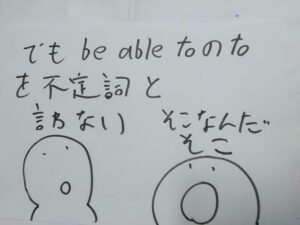 でも be able toのto
を不定詞と
言わない
そこなんだ
そこ